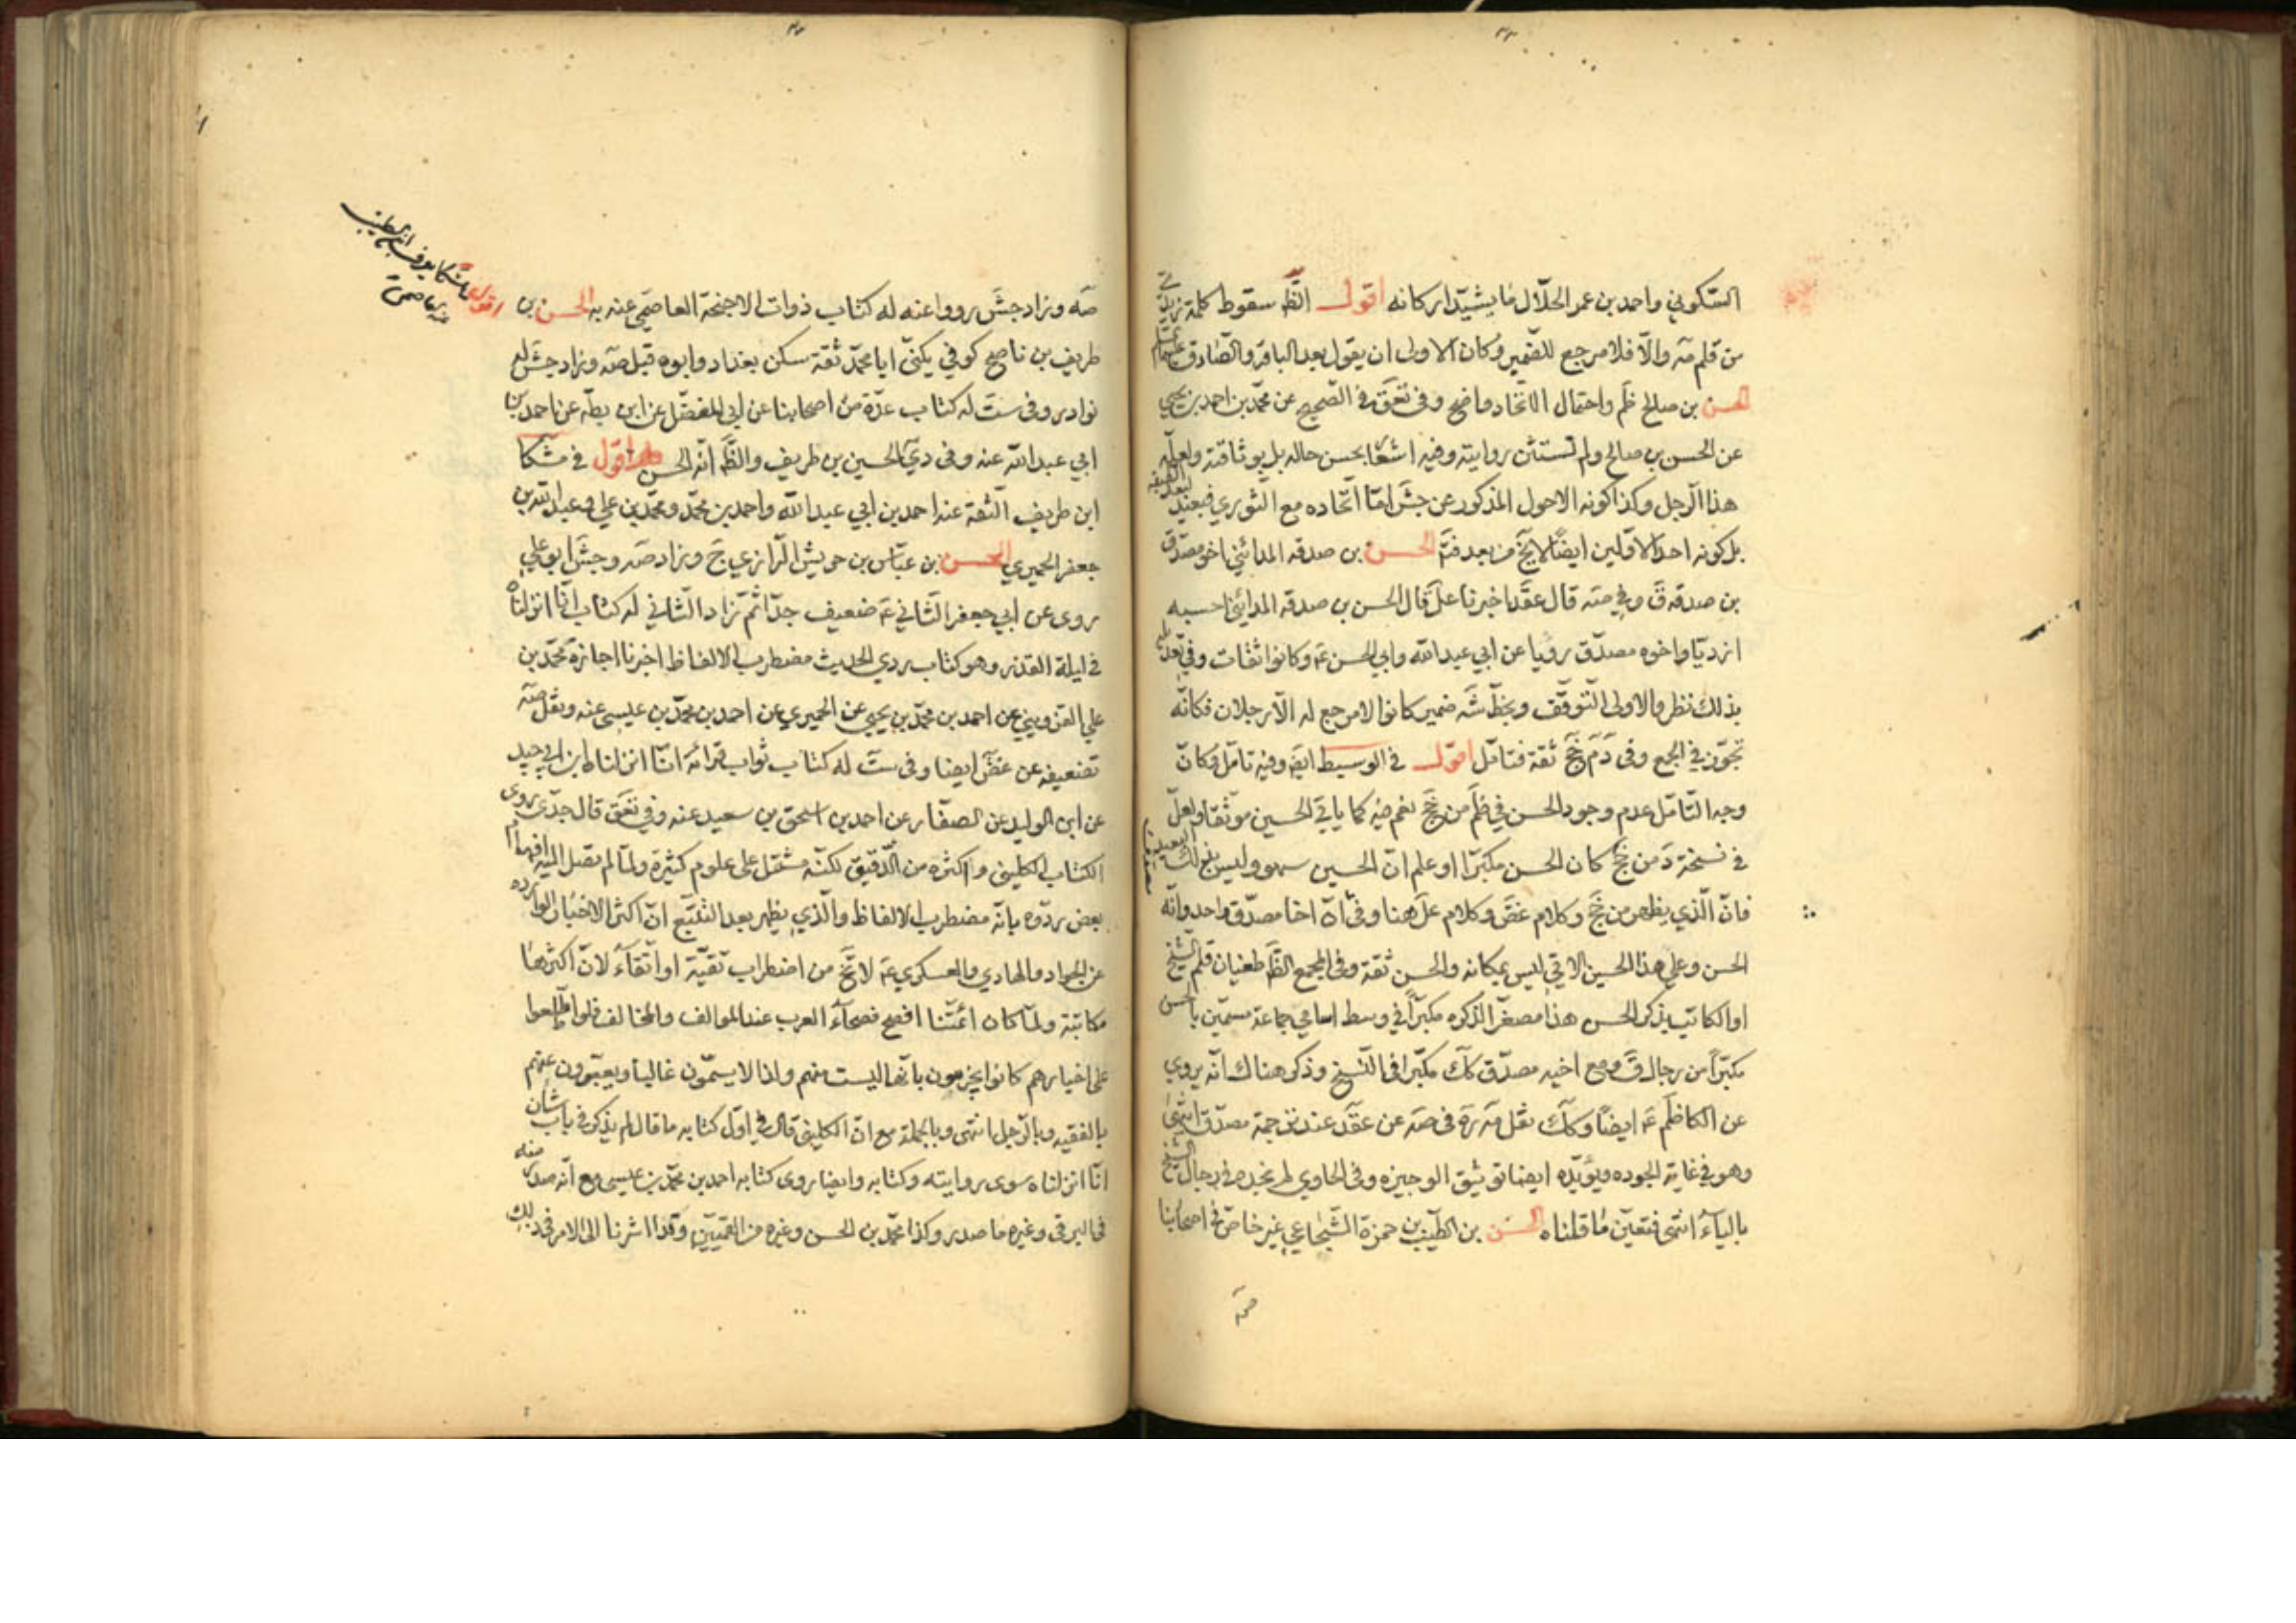 السّكوني واحمد بن عمر الحلّال ما يشيّد اركانه اقول الظّ سقوط كلمة
من قلم مه والّا فلا مرجع للضمير وكان الاولى ان يقول بعد الباقر والصّادق عليهما
الحسن بن صالح ظم واحتمال الاتّحاد واضح وفي تعق في الصّحيح عن محمّد بن احمد بن يحيى
عن الحسن بن صالح ولم تستثن روايته وفيه اشعار بحسن حاله بل بوثاقته ولعلّه
هذا الرجل وكذا كونه الاحول المذكور عن جش امّا اتّحاده مع الثوري فبعيد لبعد الطبقه
بل كونه احد الاوّلين ايضًا لا يخ من بعد فتم الحسن بن صدقه المدائني اخو مصدّق
بن صدقه ق وفي صه قال عقد اخبرنا عل قال الحسن بن صدقه المدائني احسبه
ازديّا واخوه مصدّق رويا عن ابي عبد الله وابي الحسن ع وكانوا ثقات وفي
بذلك نظر والاولى التوقّف وبخطّ شه ضمير كانوا لا مرجع له الّا رجلان فكانّه
تجوّز في الجمع وفي دم جخ ثقة فتامّل اقول في الوسيط ايضه وفيه تامّل وكانّ
وجه التّامّل عدم وجود الحسن في ظم من جخ نعم فيه كما ياتي الحسين موثّقا ولعلّ
في نسخة د من جخ كان الحسن مكبّرا او علم انّ الحسين سهو وليس بذلك البعيد
فانّ الّذي يظهر من جخ وكلام غض وكلام عل هنا وفي انّ اخا مصدّق واحد وانّه
الحسن وعلى هذا الحسين الاتي ليس بمكانه والحسن ثقة وفي المجمع الظّ طغيان قلم الشيخ
او الكاتب بذكر الحسن هذا مصغّرا لذكره مكبّرا في وسط اسامي جماعة مسمّين بالحسن
مكبّرا من رجال ق ومع اخيه مصدّق كك مكبّرا في النّسخ وذكر هناك انّه يروي
عن الكاظم ع ايضًا وكك نقل مه ره في صه عن عقد عند ترجمة مصدّق انتهى
وهو في غاية الجوده ويؤيّده ايضا توثيق الوجيزه وفي الحاوي لم نجده في رجال الشيخ
بالياء انتهى فتعيّن ما قلناه الحسن بن الطّيّب بن حمزة الشّجاعي غير خاصّ في اصحابنا
صه
صه وزاد جش رووا عنه له كتاب ذوات الاجنحة العاصمي عنه به الحسن بن
طريف بن ناصح كوفي يكنّى ابا محمّد ثقة سكن بغداد وابوه قبل صه وزاد جش له
نوادر وفي ست له كتاب عدّة من اصحابنا عن ابي المفضّل عن ابن بطّه عن احمد بن
ابي عبد الله عنه وفي دي الحسين بن طريف والظّ انّه الحسن اقول في مشكا
ابن طريف الثقة عنه احمد بن ابي عبد الله واحمد بن محمّد ومحمّد بن علي وعبد الله بن
جعفر الحميري الحسن بن عبّاس بن حريش الرازي ج وزاد صه وجش ابو علي
روى عن ابي جعفر الثاني ع ضعيف جدّا ثمّ زاد الثاني له كتاب انّا انزلناه
في ليلة القدر وهو كتاب ردي الحديث مضطرب الالفاظ اخبرنا اجازة محمّد بن
علي القزويني عن احمد بن محمّد بن يحيى عن الحميري عن احمد بن محمّد بن عيسى عنه ونقل صه
تضعيفه عن غض ايضا وفي ست له كتاب ثواب قرائة انّا انزلناه ابن ابي جيد
عن ابن الوليد عن الصفّار عن احمد بن اسحق بن سعيد عنه وفي تعق قال جدّي روى
الكتاب الكليني واكثره من الدّقيق لكنّه مشتمل على علوم كثيرة ولمّا لم يصل اليه افهام
بعض ردّوه بانّه مضطرب الالفاظ والّذي يظهر بعد التتبّع انّ اكثر الاخبار الوارده
عن الجواد والهادي والعسكري ع لا تخ من اضطراب تقيّة او اتّقاء لانّ اكثرها
مكاتبة ولمّا كان ائمّتنا افصح فصحاء العرب عند الموالف والمخالف فلو اطّلعوا
على اخبارهم كانوا يجزمون بانّها ليست منهم ولذا لا يسمّون غالبا ويعبّرون عنهم
بالفقيه وبالرّجل انتهى وبالجملة مع انّ الكليني قال في اوّل كتابه ما قال لم يذكر في باب شان
انّا انزلناه سوى روايته وكتابه وايضا روى كتابه احمد بن محمّد بن عيسى مع انّه صدر منه
في البرقي وغيره ما صدر وكذا محمّد بن الحسن وغيره من القميّين وقد اشرنا الى الامر في ذلك